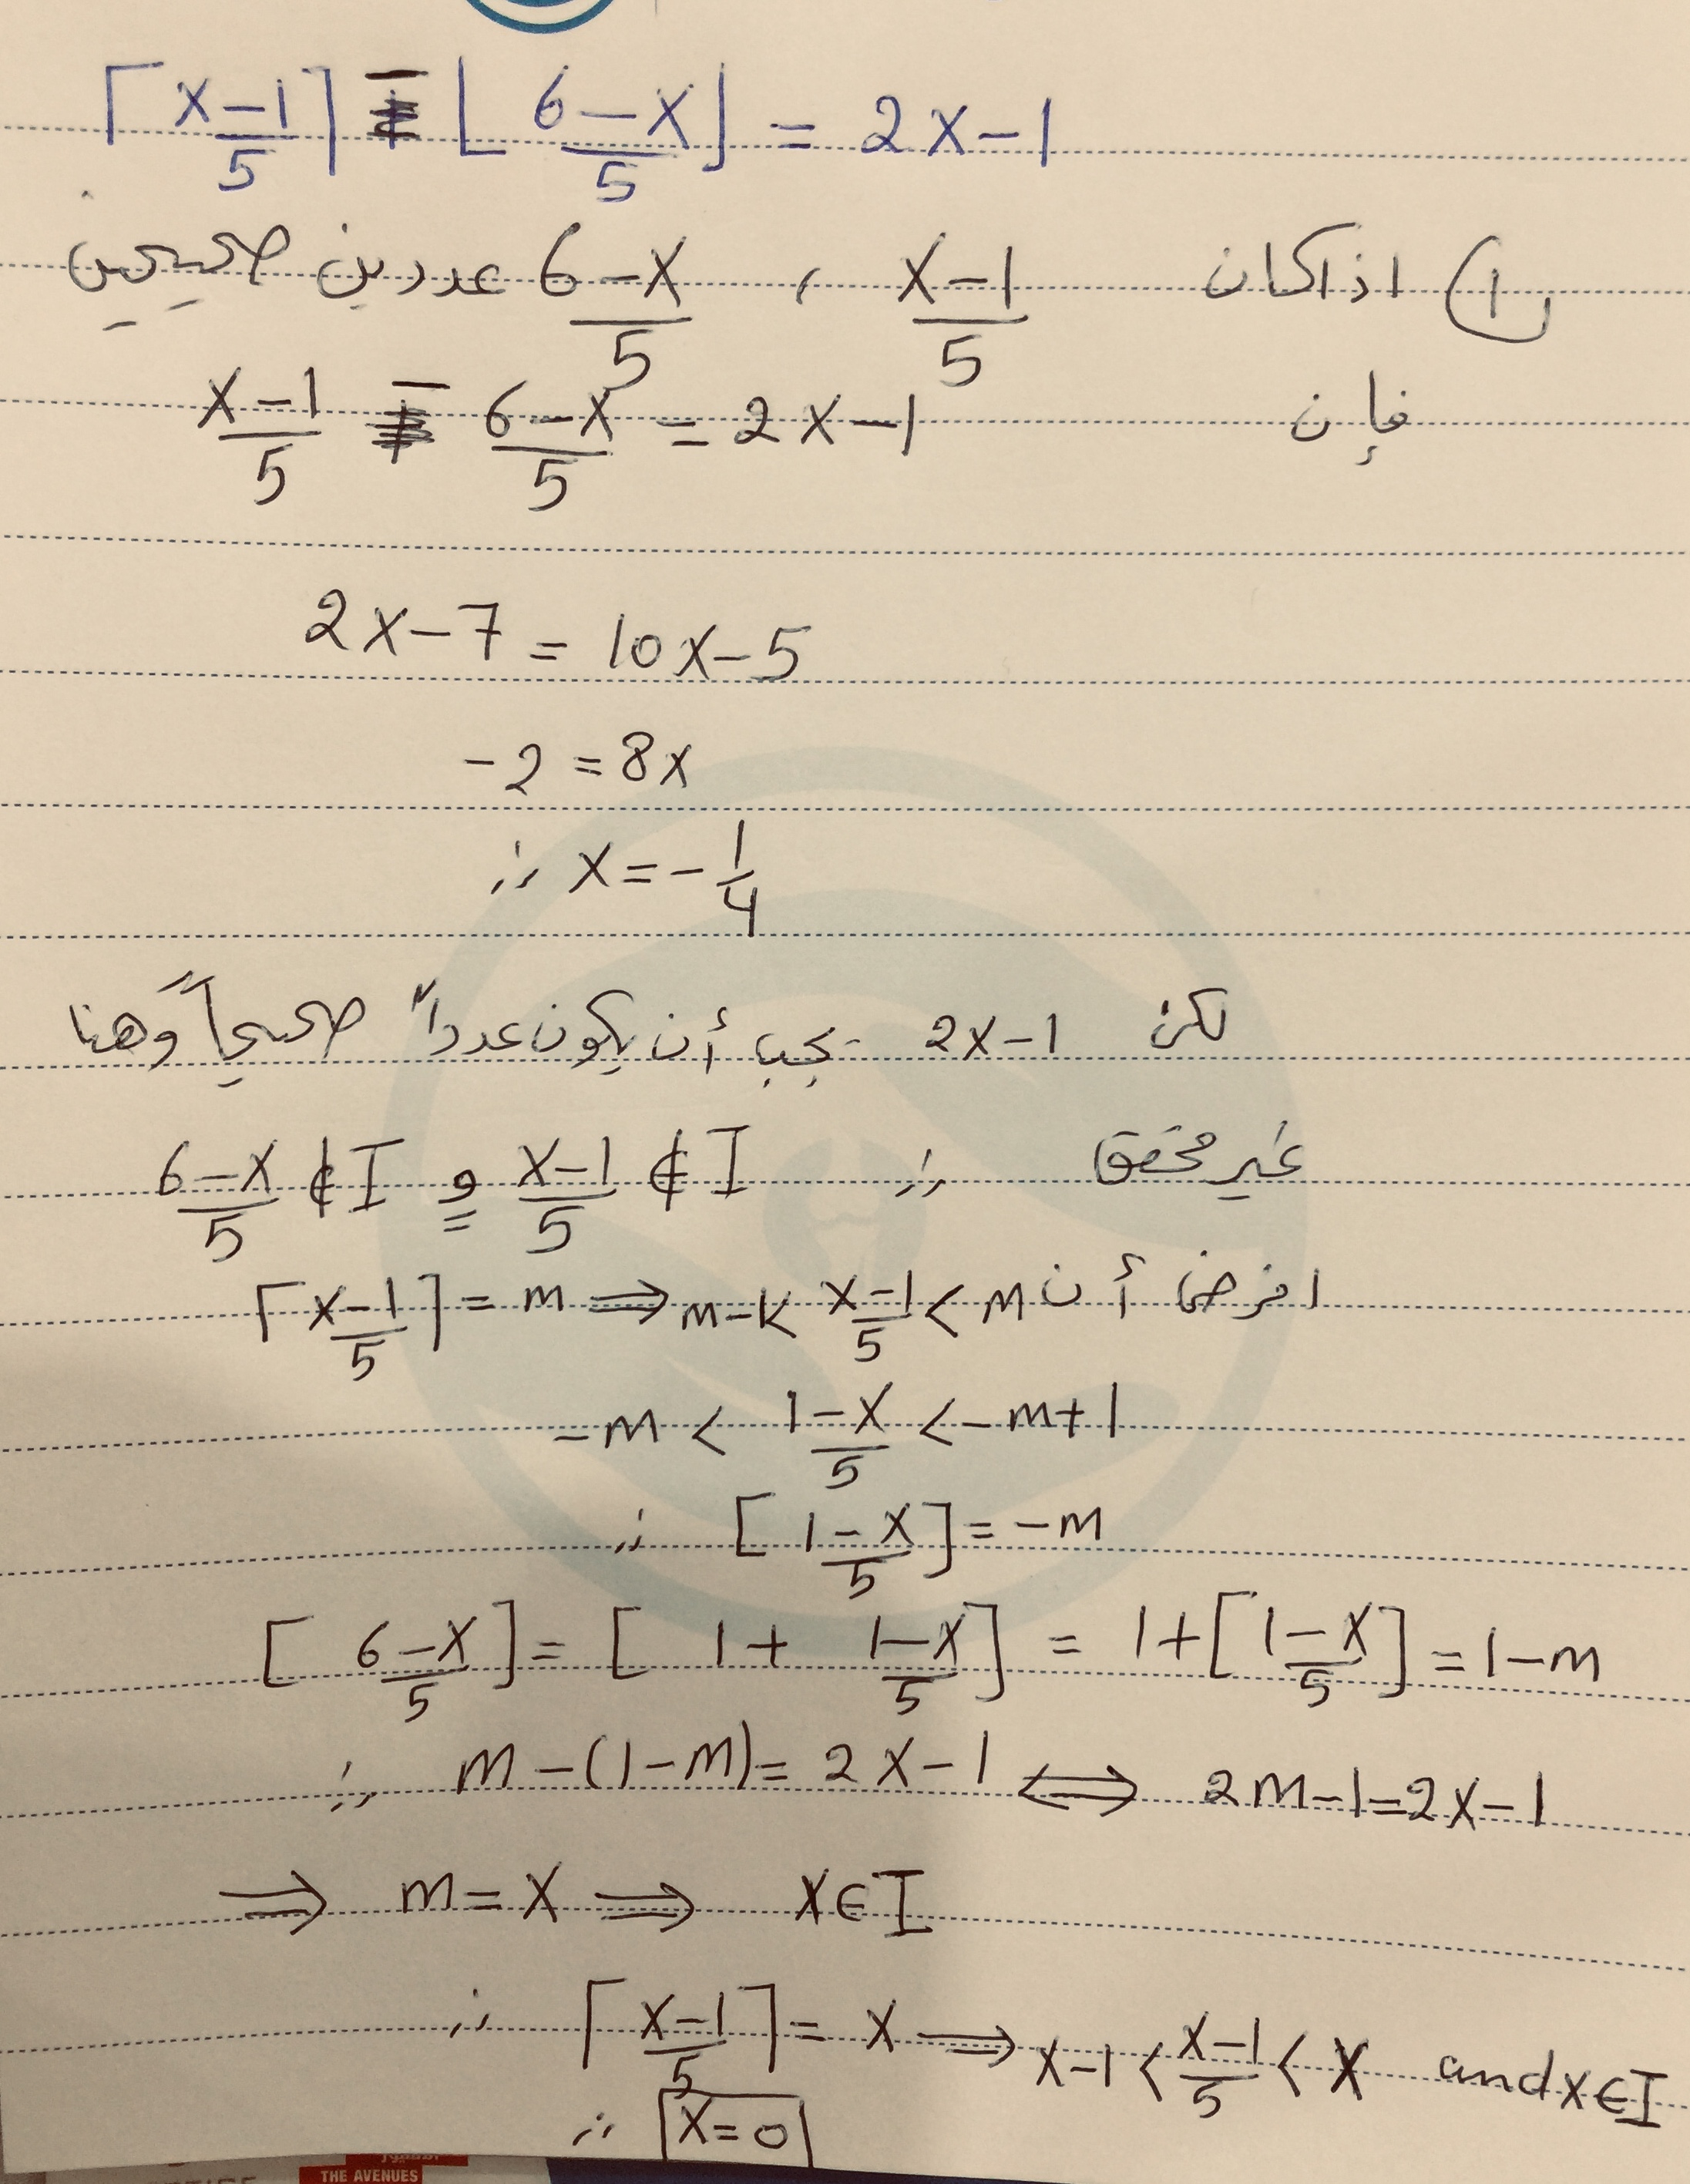 ⌈(x-1)/5⌉ - ⌊(6-x)/5⌋ = 2x-1
① اذا كان (x-1)/5 ، (6-x)/5 عددين صحيحين
فإن (x-1)/5 - (6-x)/5 = 2x-1
2x-7 = 10x-5
-2 = 8x
∴ x = -1/4
لكن 2x-1 يجب أن يكون عدداً صحيحاً وهنا
غير محقق ∴ (x-1)/5 ∉ I و (6-x)/5 ∉ I
افرض أن ⌈(x-1)/5⌉ = m ⟹ m-1< (x-1)/5 < m
-m < (1-x)/5 < -m+1
∴ [(1-x)/5] = -m
[(6-x)/5] = [1 + (1-x)/5] = 1+[(1-x)/5] = 1-m
∴ m-(1-m) = 2x-1 ⟺ 2m-1=2x-1
⟹ m = x ⟹ x∈I
∴ ⌈(x-1)/5⌉ = x ⟹ x-1 < (x-1)/5 < x and x∈I
∴ x=0
THE AVENUES